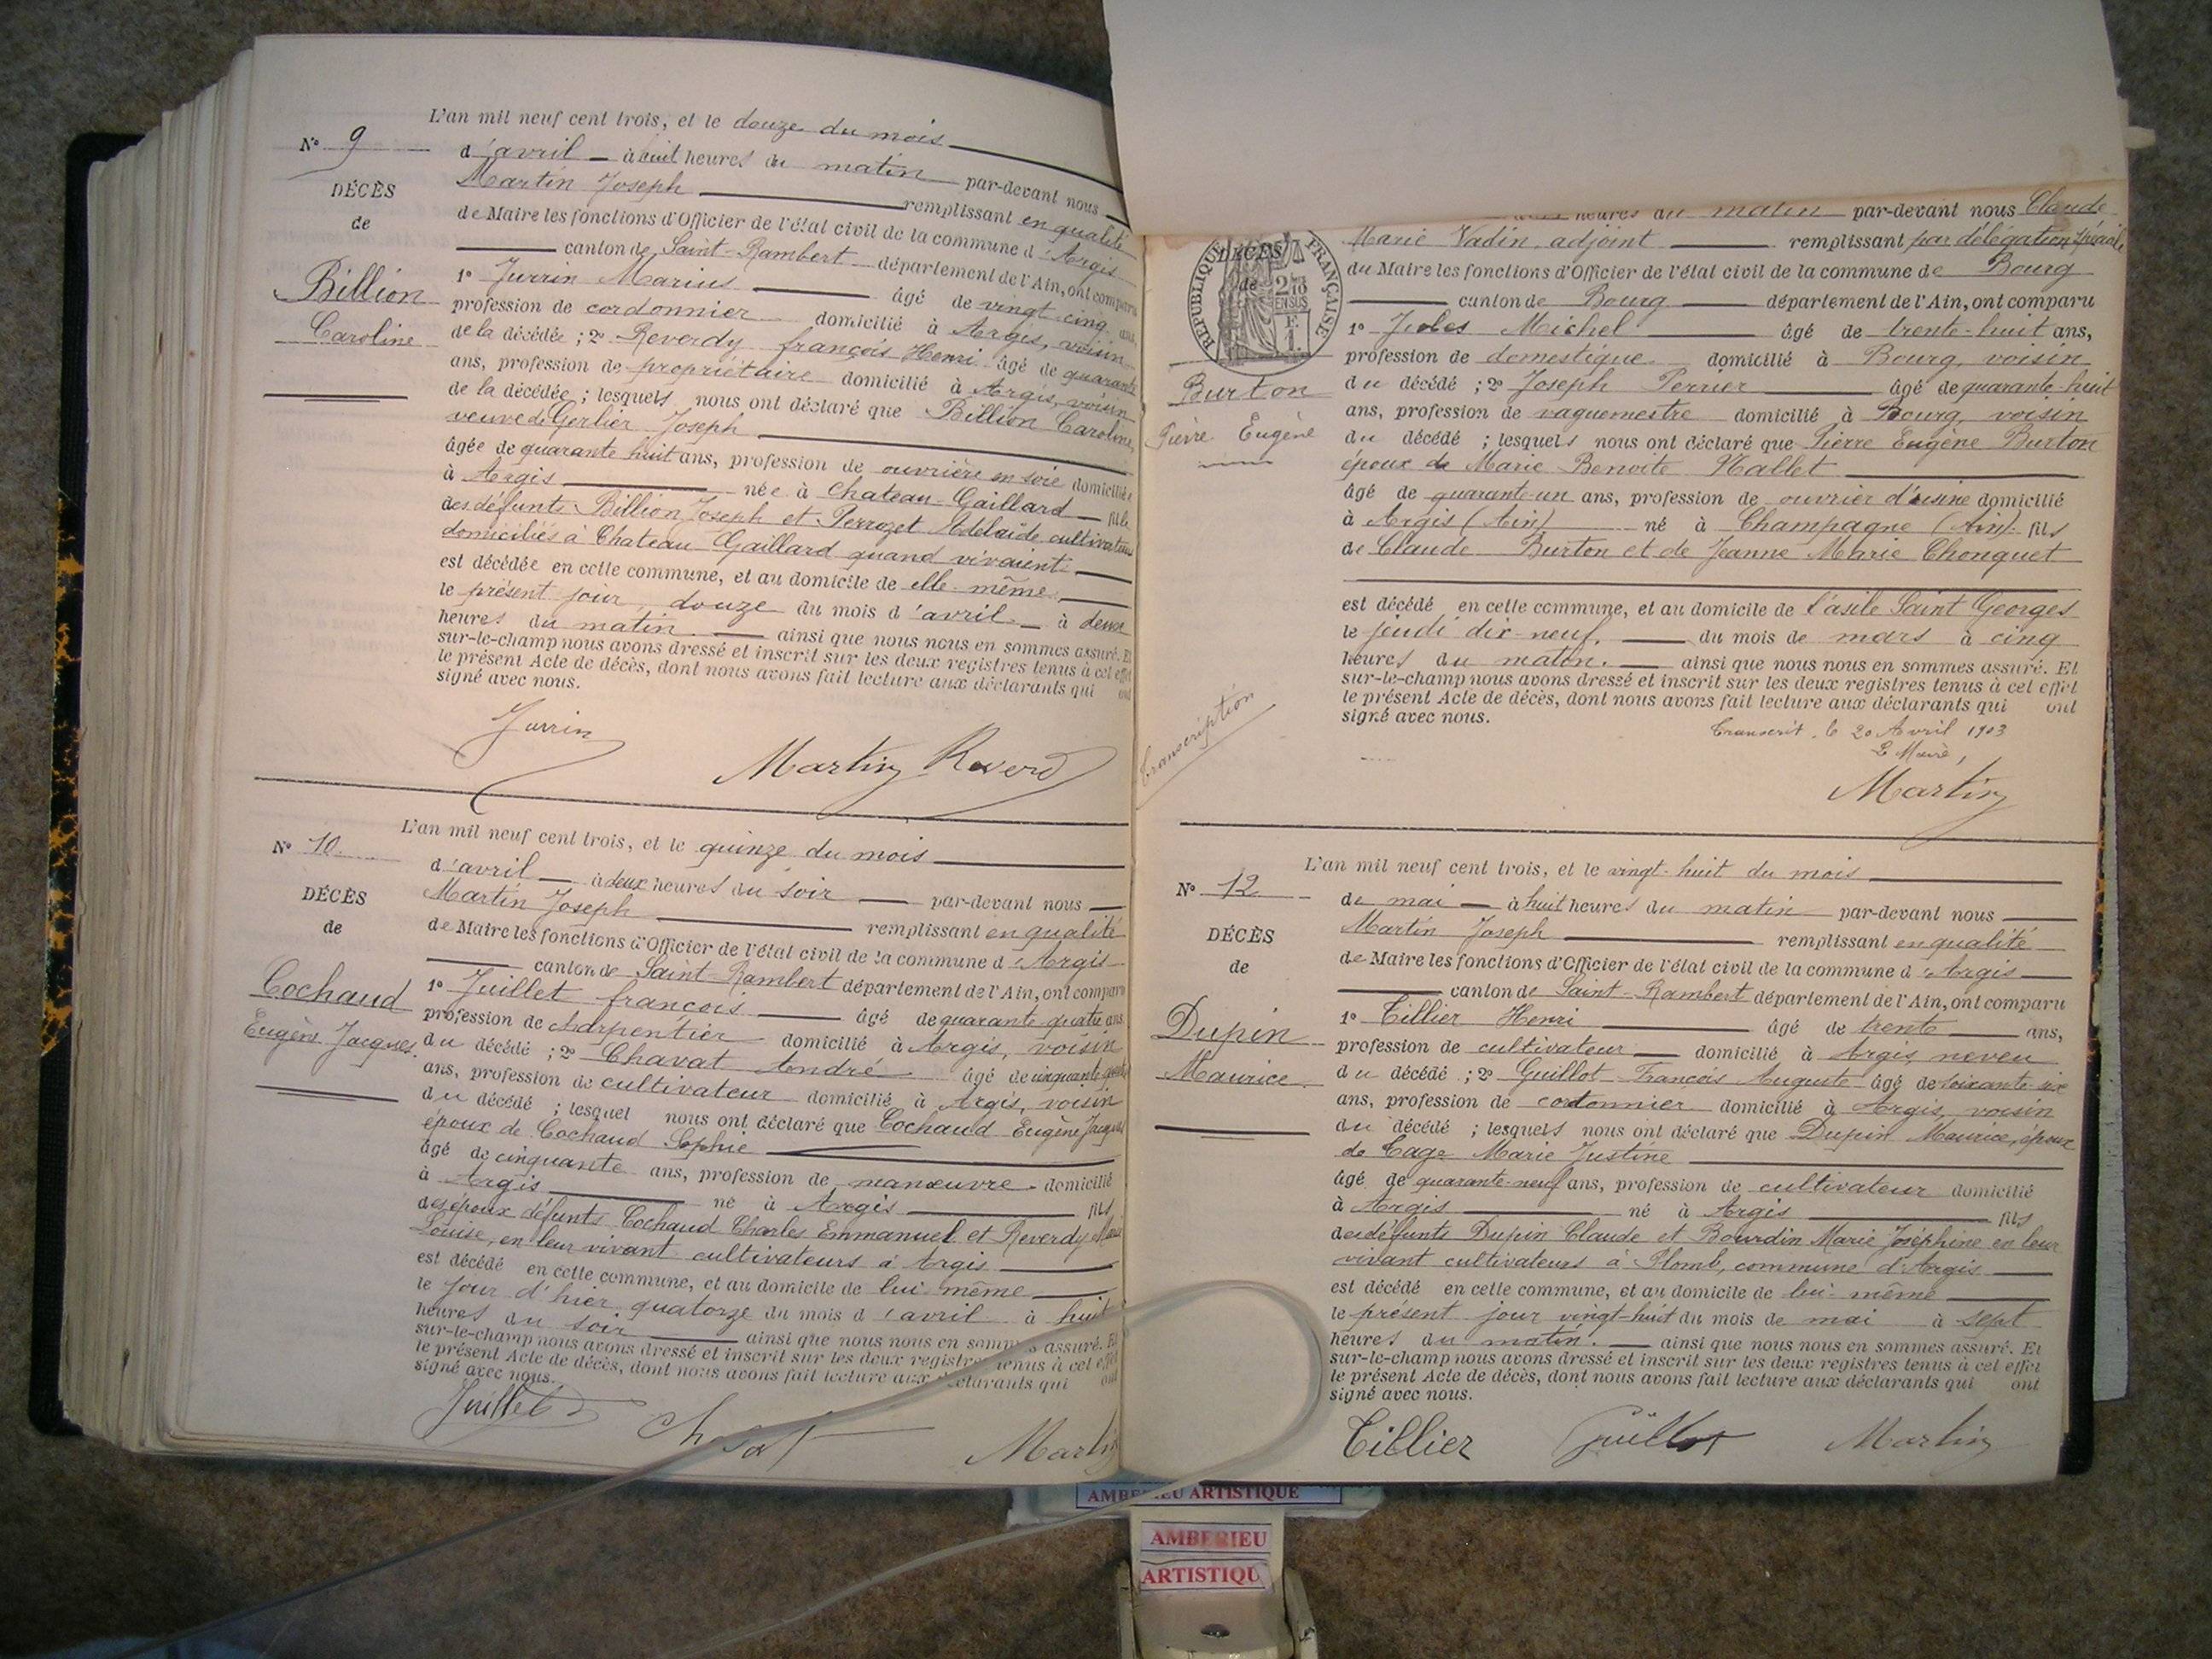 L'an mil neuf cent trois, et le douze du mois
N° 9
d'avril à huit heures du matin par-devant nous
DÉCÈS
Martin Joseph remplissant en qualité
de
de Maire les fonctions d'Officier de l'état civil de la commune d'Argis
canton de Saint-Rambert département de l'Ain, ont comparu
Billion
Caroline
1° Jurrin Marius âgé de vingt-cinq ans,
profession de cordonnier domicilié à Argis, voisin
de la décédée ; 2° Reverdy françois Henri âgé de quarante
ans, profession de propriétaire domicilié à Argis, voisin
de la décédée ; lesquels nous ont déclaré que Billion Caroline,
veuve de Gerlier Joseph
âgée de quarante huit ans, profession de ouvrière en soie domiciliée
à Argis née à Chateau-Gaillard fille
des défunts Billion Joseph et Perrozet Adélaïde cultivateurs
domiciliés à Chateau Gaillard quand vivaient
est décédée en cette commune, et au domicile de elle-même
le présent jour, douze du mois d'avril à deux
heures du matin. ainsi que nous nous en sommes assuré. Et
sur-le-champ nous avons dressé et inscrit sur les deux registres tenus à cet effet
le présent Acte de décès, dont nous avons fait lecture aux déclarants qui ont
signé avec nous.
Jurrin
Martin Reverd
L'an mil neuf cent trois, et le quinze du mois
N° 10
d'avril à deux heures du soir par-devant nous
DÉCÈS
Martin Joseph remplissant en qualité
de
de Maire les fonctions d'Officier de l'état civil de la commune d'Argis
canton de Saint-Rambert département de l'Ain, ont comparu
Cochaud
Eugène Jacques
1° Juillet francois âgé de quarante quatre ans
profession de charpentier domicilié à Argis, voisin
du décédé ; 2° Chavat André âgé de cinquante
ans, profession de cultivateur domicilié à Argis, voisin
du décédé ; lesquel nous ont déclaré que Cochaud Eugène Jacques
époux de Cochaud Sophie
âgé de cinquante ans, profession de manœuvre domicilié
à Argis né à Argis fils
des époux défunts Cochaud Charles Emmanuel et Reverdy Marie
Louise, en leur vivant cultivateurs à Argis
est décédé en cette commune, et au domicile de lui même
le jour d'hier quatorze du mois d'avril à huit
heures du soir ainsi que nous nous en sommes assuré. Et
sur-le-champ nous avons dressé et inscrit sur les deux registres tenus à cet effet
le présent Acte de décès, dont nous avons fait lecture aux déclarants qui ont
signé avec nous.
Juillet Chavat Martin
heures du matin par-devant nous Claude
Marie Vadin, adjoint remplissant par délégation spéciale
DÉCÈS
de
RÉPUBLIQUE FRANÇAISE
2/10 EN SUS
E. 1.
du Maire les fonctions d'Officier de l'état civil de la commune de Bourg
canton de Bourg département de l'Ain, ont comparu
1° Jules Michel âgé de trente-huit ans,
profession de domestique domicilié à Bourg, voisin
Burton
Pierre Eugène
du décédé ; 2° Joseph Perrier âgé de quarante-huit
ans, profession de vaguemestre domicilié à Bourg, voisin
du décédé ; lesquels nous ont déclaré que Pierre Eugène Burton
époux de Marie Benoite Nallet
âgé de quarante-un ans, profession de ouvrier d'usine domicilié
à Argis (Ain) né à Champagne (Ain) fils
de Claude Burton et de Jeanne Marie Chonguet
est décédé en cette commune, et au domicile de l'asile Saint Georges
le jeudi dix-neuf. du mois de mars à cinq
heures du matin. ainsi que nous nous en sommes assuré. Et
sur-le-champ nous avons dressé et inscrit sur les deux registres tenus à cet effet
le présent Acte de décès, dont nous avons fait lecture aux déclarants qui ont
signé avec nous.
Transcription
Transcrit, le 20 Avril 1903
Le Maire,
Martin
L'an mil neuf cent trois, et le vingt-huit du mois
N° 12
de mai à huit heures du matin par-devant nous
DÉCÈS
Martin Joseph remplissant en qualité
de
de Maire les fonctions d'Officier de l'état civil de la commune d'Argis
canton de Saint-Rambert département de l'Ain, ont comparu
Dupin
Maurice
1° Tillier Henri âgé de trente ans,
profession de cultivateur domicilié à Argis, neveu
du décédé ; 2° Guillot François Auguste âgé de soixante-six
ans, profession de cordonnier domicilié à Argis, voisin
du décédé ; lesquels nous ont déclaré que Dupin Maurice, époux
de Cage Marie Justine
âgé de quarante-neuf ans, profession de cultivateur domicilié
à Argis né à Argis fils
des défunts Dupin Claude et Bourdin Marie Joséphine en leur
vivant cultivateurs à Plomb, commune d'Argis
est décédé en cette commune, et au domicile de lui-même
le présent jour vingt-huit du mois de mai à sept
heures du matin. ainsi que nous nous en sommes assuré. Et
sur-le-champ nous avons dressé et inscrit sur les deux registres tenus à cet effet
le présent Acte de décès, dont nous avons fait lecture aux déclarants qui ont
signé avec nous.
Tillier Guillot Martin
AMBERIEU ARTISTIQUE
AMBERIEU
ARTISTIQU